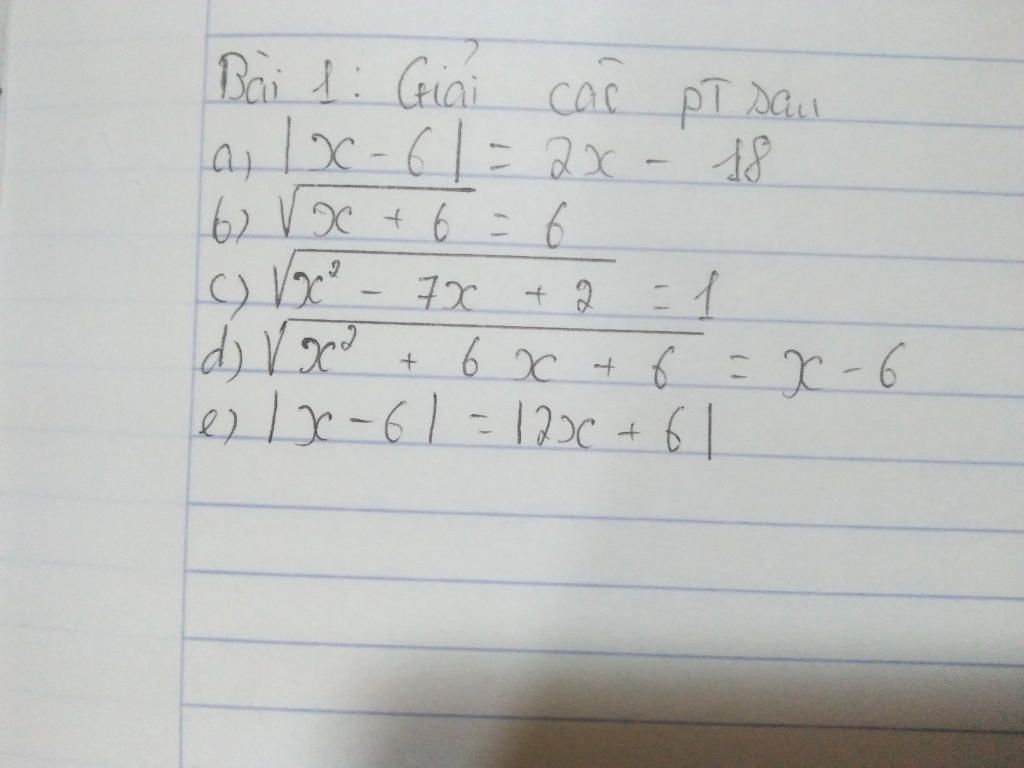 Bài 1: Giải các pT sau
a) |x - 6| = 2x - 18
b) √(x + 6) = 6
c) √(x² - 7x + 2) = 1
d) √(x² + 6x + 6) = x - 6
e) |x - 6| = |2x + 6|